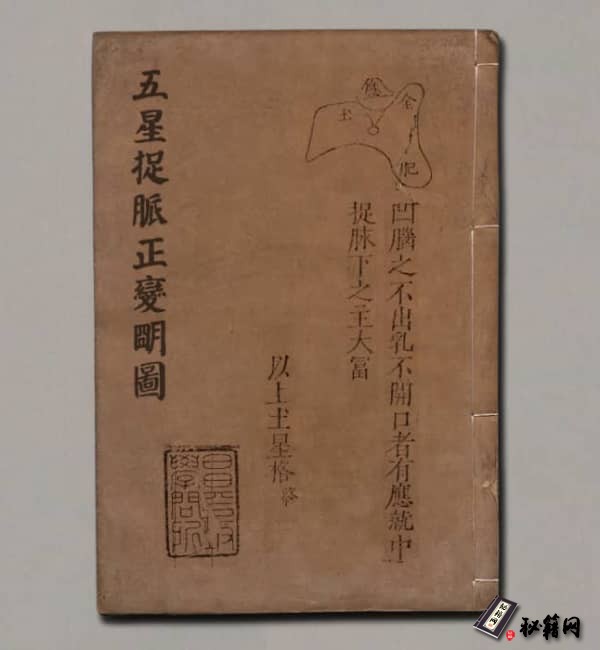 金
土
肥
凹腦之不出乳不開口者有應就中
捉脉下之主大冨
以上土星格
五星捉脈正變明圖
昌平坂
學問所
秘籍网